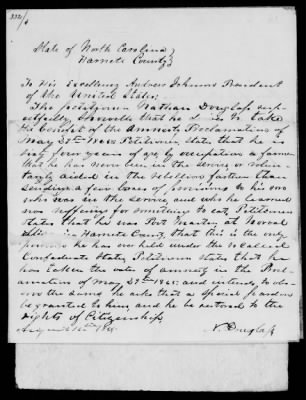 State of North Carolina
Harnett County
To His Excellency Andrew Johnson President
of the United States,
The petitioner Nathan Douglass
respectfully Showeth that he desires to take
the benefit of the Amnesty Proclamation of
May 29th 1865. Petitioner states that he is
sixty four years of age by occupation a farmer
that he has never been in the service or
aided in the rebellion farther than
sending a few boxes of provisions to his son
who was in the service, and who he learned
was suffering for something to eat. Petitioner
states that he was Post Master at
in Harnett County, that this is the only
he has ever held under the so called
Confederate States, Petitioner states that he
has taken the oath of amnesty in the
of May 29th 1865. and intends to
the same. he asks that a special pardon
be granted to him and he be restored to the
rights of Citizenship.
1865 N. Douglass